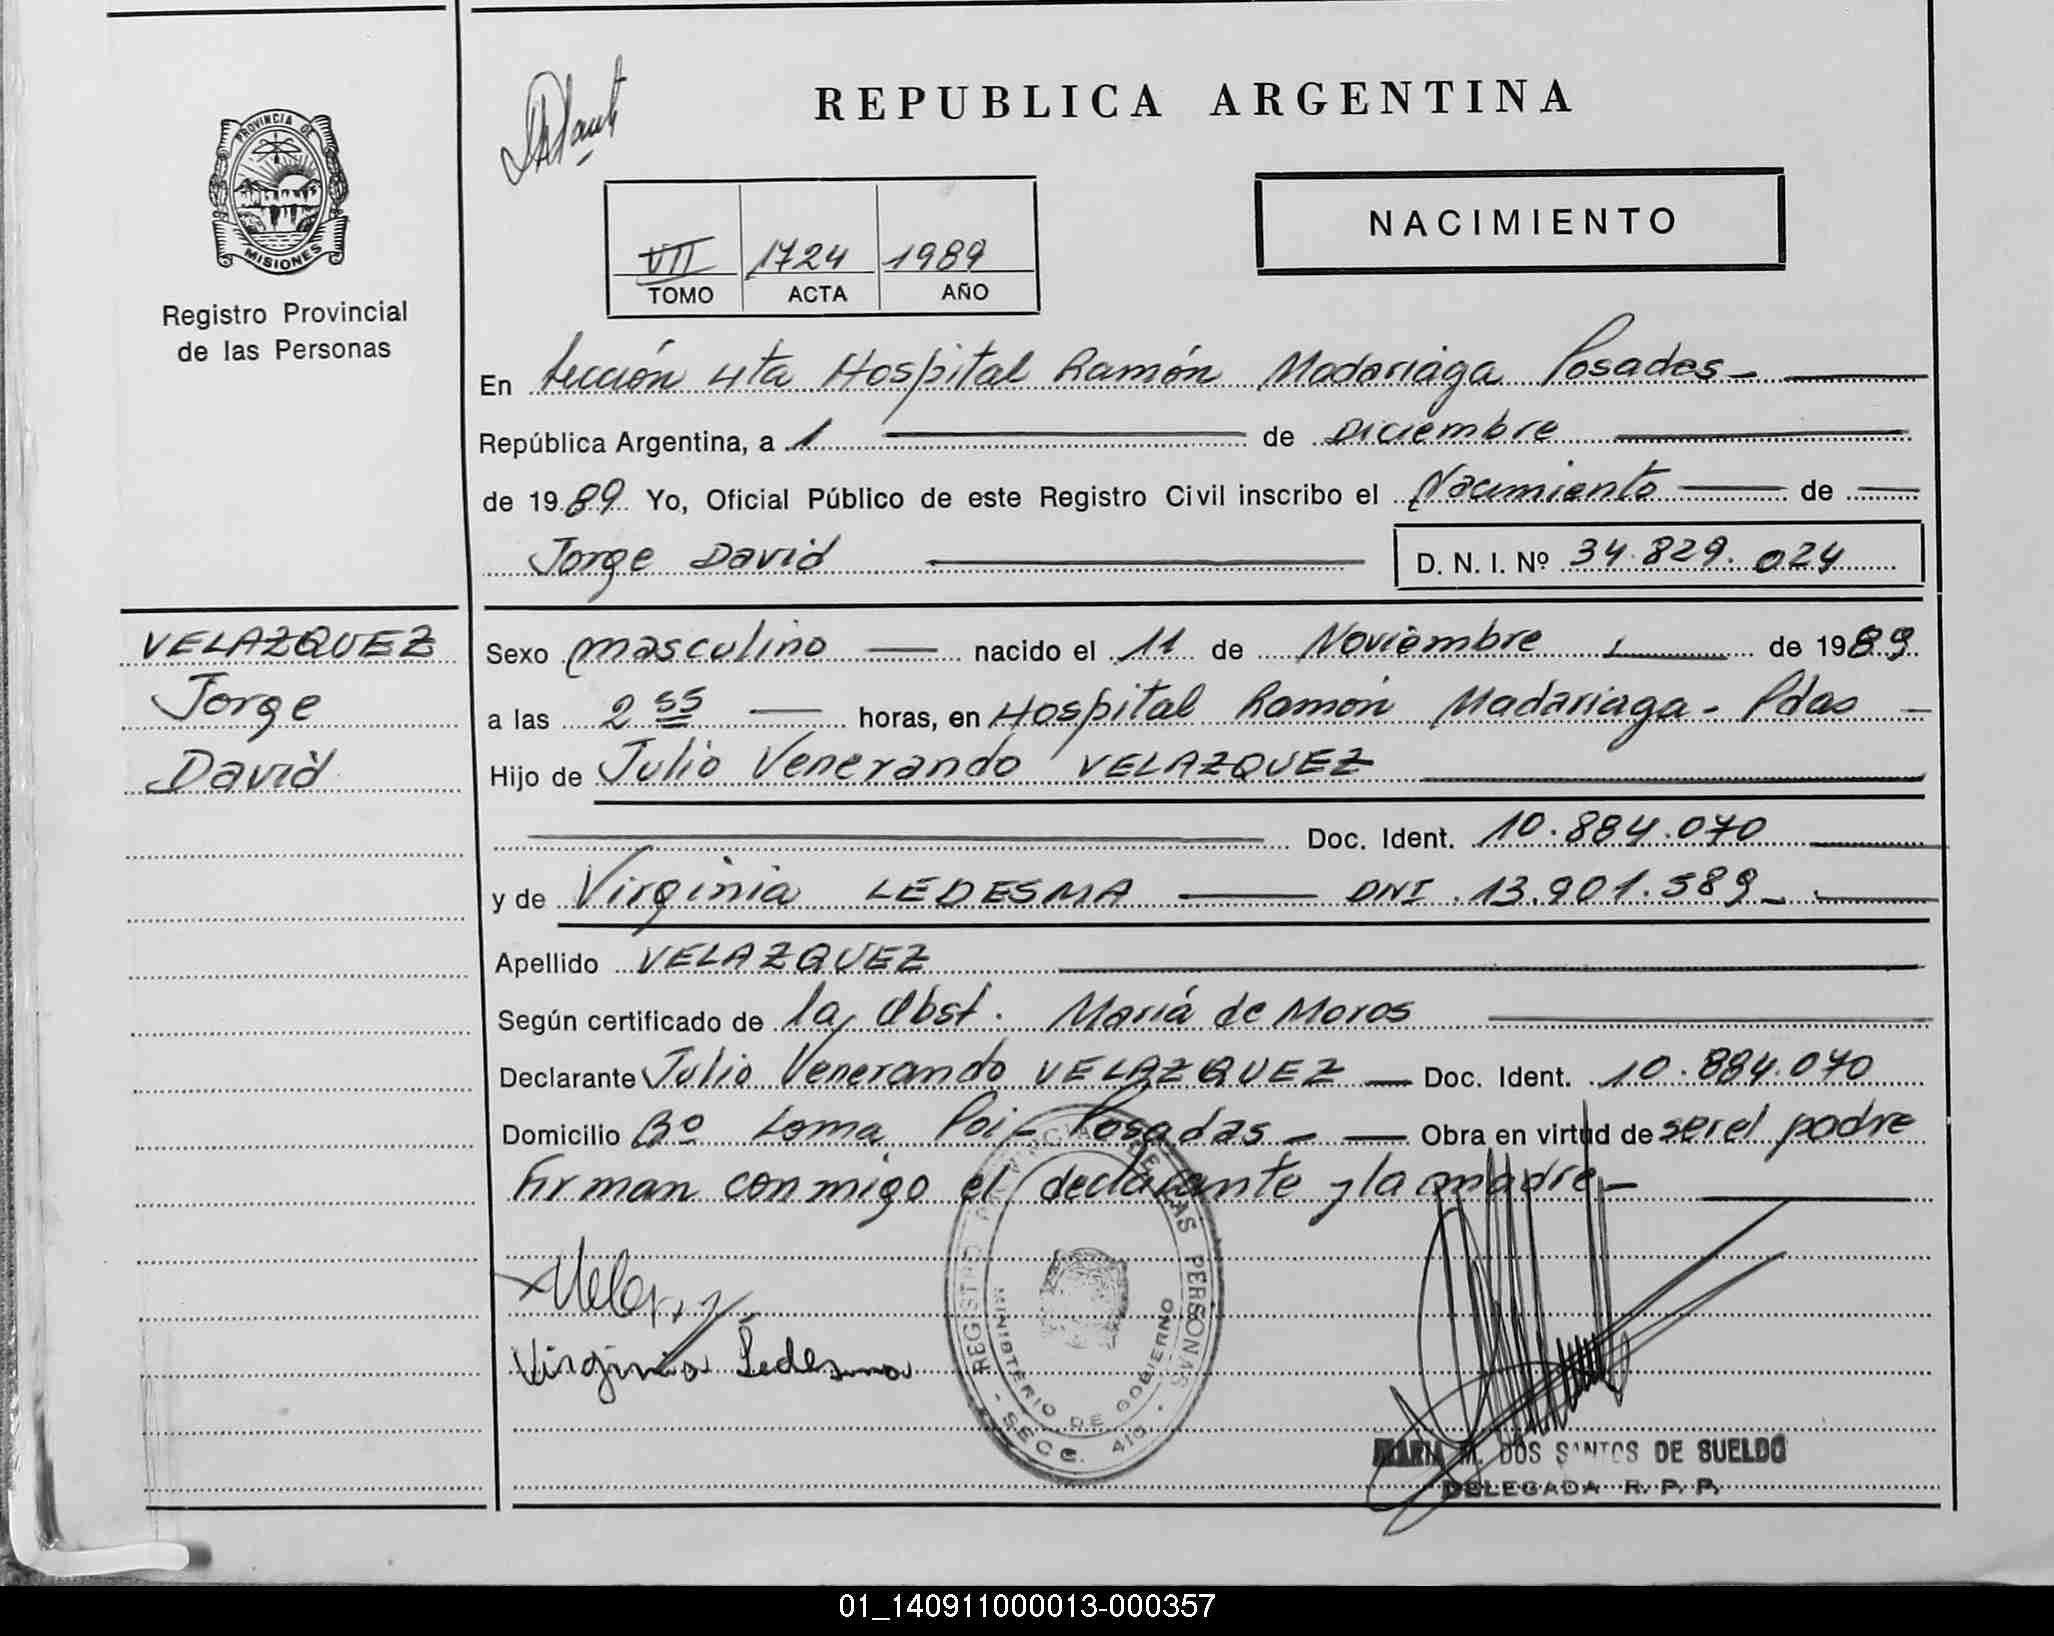 REPUBLICA ARGENTINA
PROVINCIA DE
MISIONES
Registro Provincial
de las Personas
NACIMIENTO
VII 1724 1989
TOMO ACTA AÑO
En Sección 4ta Hospital Ramón Madariaga Posadas -
República Argentina, a 1 de Diciembre
de 1989 Yo, Oficial Público de este Registro Civil inscribo el Nacimiento de
Jorge David D. N. I. Nº 34.829.024
VELAZQUEZ
Jorge
David
Sexo masculino nacido el 11 de Noviembre de 1989
a las 2 55 horas, en Hospital Ramón Madariaga - Pdas
Hijo de Julio Venerando VELAZQUEZ
Doc. Ident. 10.884.070
y de Virginia LEDESMA DNI 13.901.589 -
Apellido VELAZQUEZ
Según certificado de la Obst. María de Moros
Declarante Julio Venerando VELAZQUEZ Doc. Ident. 10.884.070
Domicilio Bº Loma Poi - Posadas - Obra en virtud de ser el padre
Firman conmigo el declarante y la madre -
Virginia Ledesma
REGISTRO PROVINCIAL DE LAS PERSONAS
MINISTERIO DE GOBIERNO
- SECC. 4ta -
MARIA M. DOS SANTOS DE SUELDO
DELEGADA R. P. P.
01_140911000013-000357